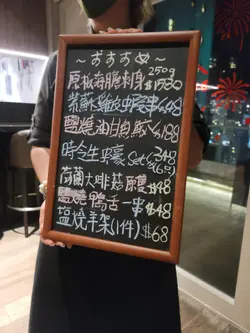 ~おすすめ~
原板海膽刺身 250g $1580
紫蘇雞皮中串 $48
鹽燒油甘魚鮫 $188
時令生蠔 Set 348 (6片)
荷蘭大啡菇原隻 $48
鹽燒鴨舌一串 $48
塩燒羊架(1件) $68